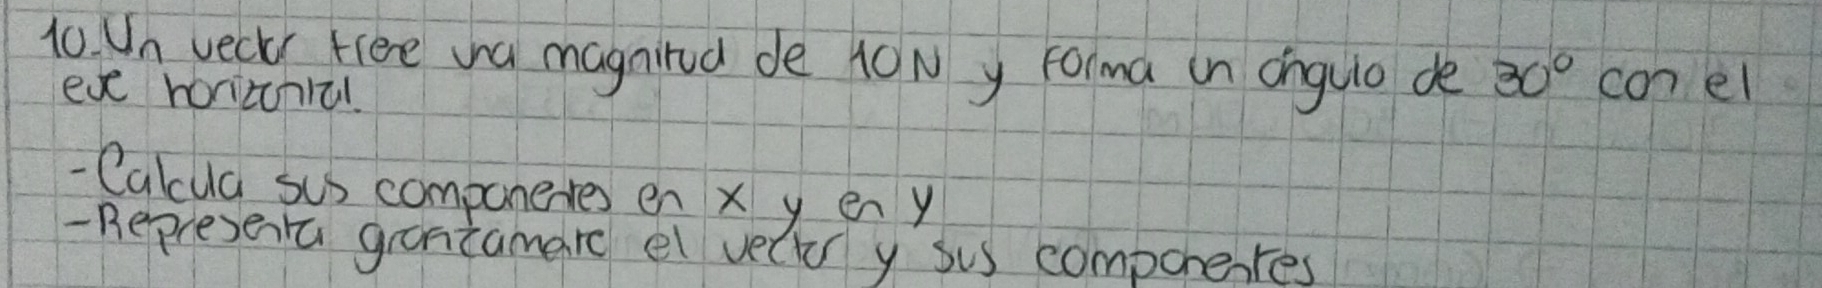 10. Un vector tiene una magnitud de 10N y forma un ángulo de 30° con el
eje horizontal.
- Calcula sus componentes en x y en y
- Representa graficamente el vector y sus componentes